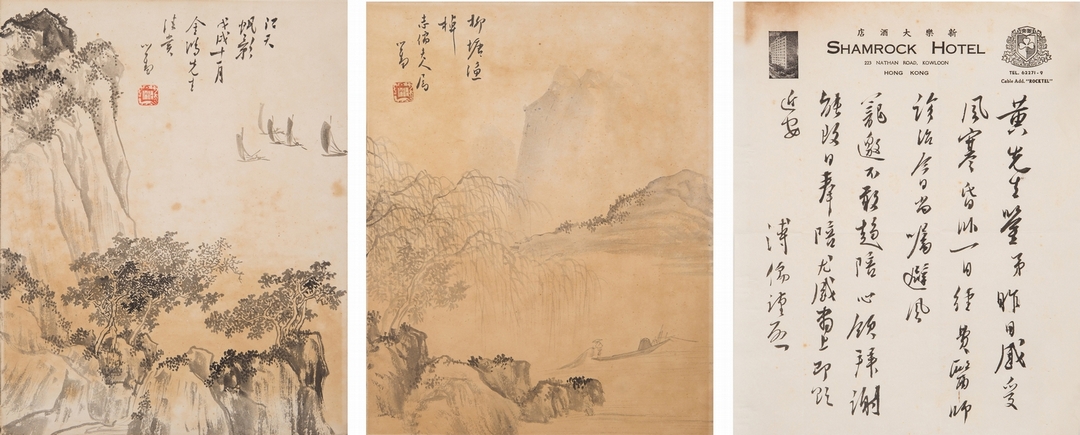 江天
帆影
戊戌十一月
金鴻先生
心畬
柳塘漁
棹
夫人屬
心畬
新樂大酒店
SHAMROCK HOTEL
223 NATHAN ROAD, KOWLOON
HONG KONG
TEL. 62271-9
Cable Add. "ROCKTEL"
黃先生鑒弟昨日感受
風寒昏臥一日經費醫師
診治今日尚囑避風
寵邀不敢趨陪心領拜謝
改日奉陪尤感肅上即頌
近安
溥儒謹啟